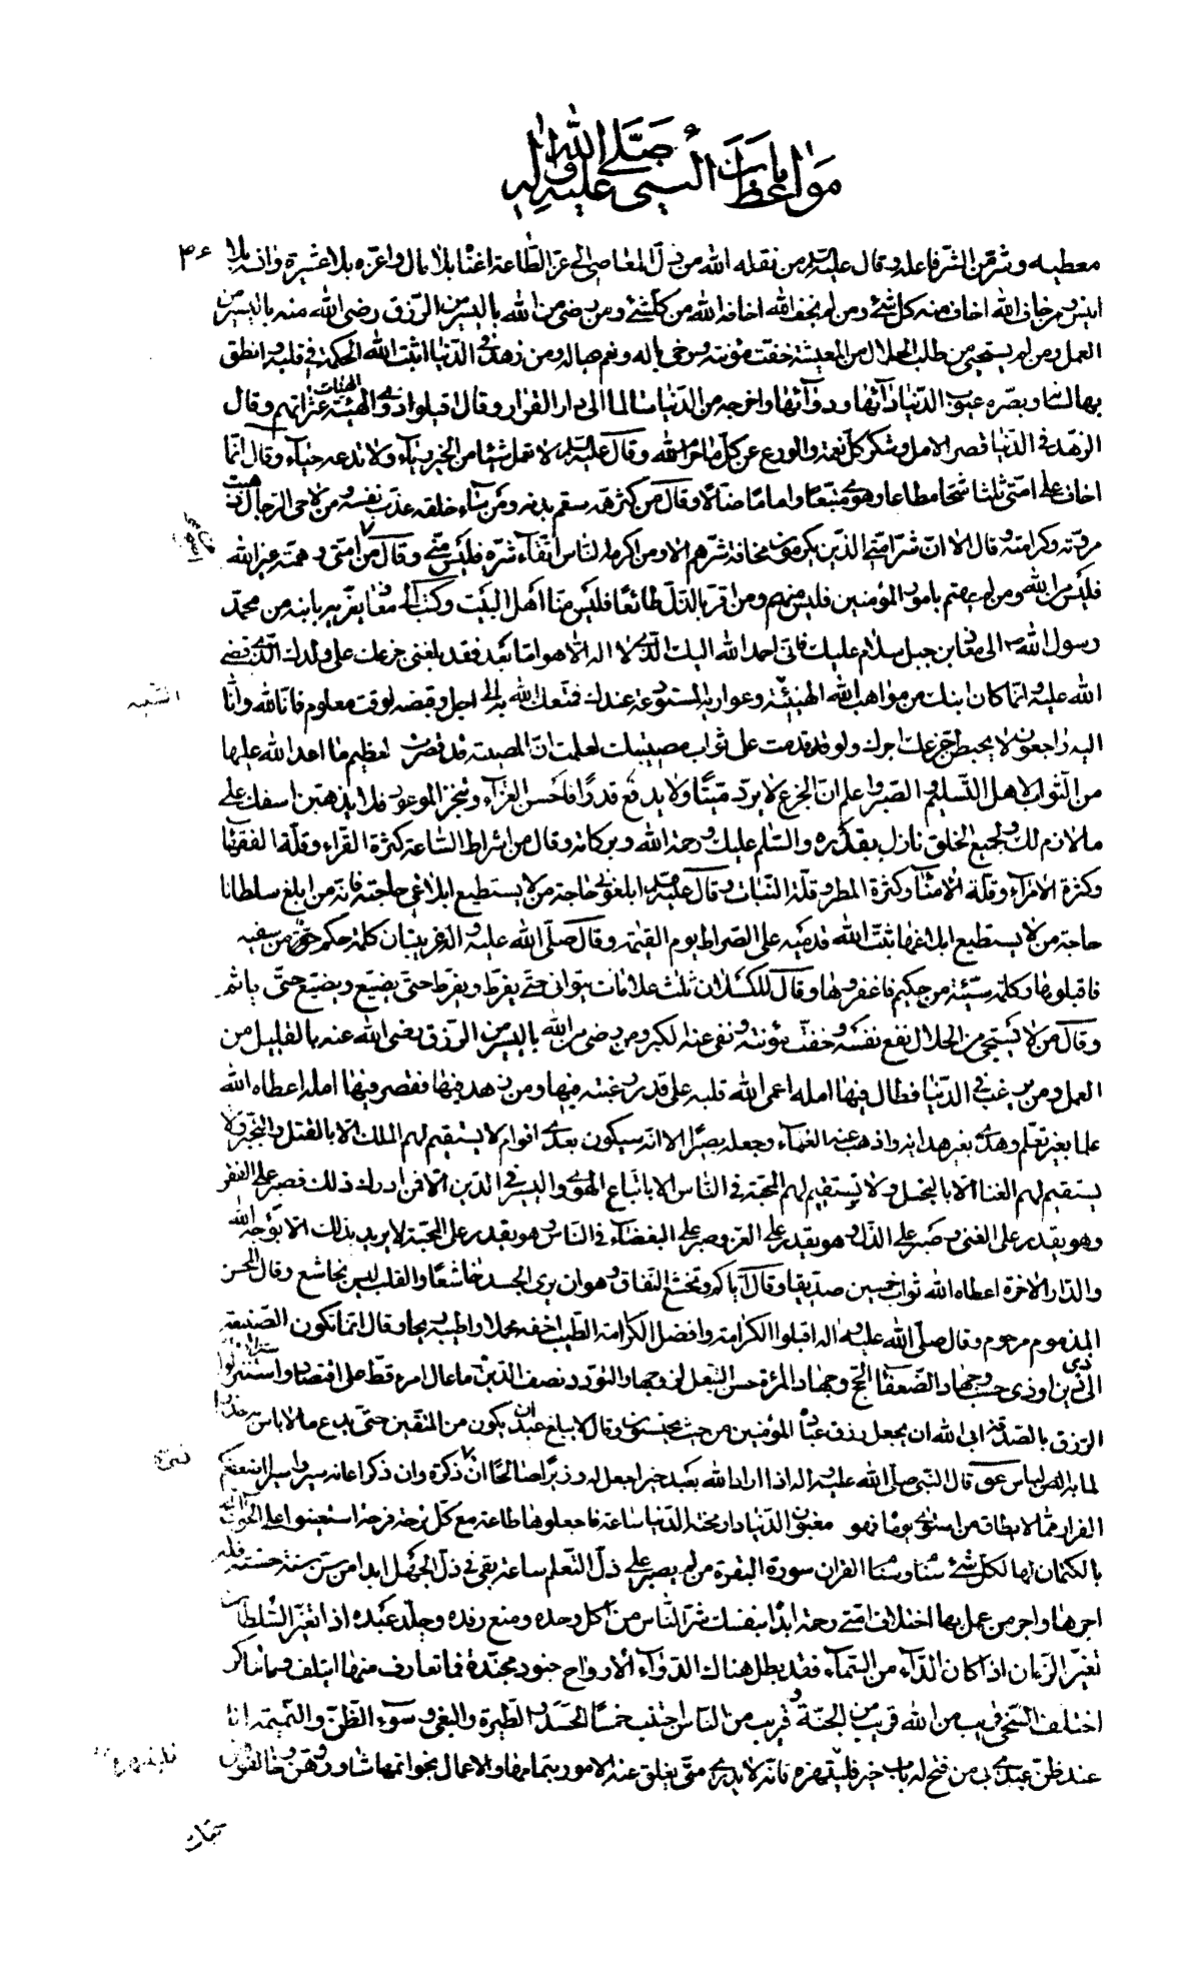 مواعظات النبي صلى الله عليه واله
۳۶
معطيه وشر من الشر فاعله وقال عليه السلام من نقله الله من ذل المعاصي الى عز الطاعة اغناه بلا مال واعزه بلا عشيرة وانسه بلا
انيس ومن خاف الله اخاف منه كل شئ ومن لم يخف الله اخافه الله من كل شئ ومن رضي من الله باليسير من الرزق رضي الله منه باليسير من
العمل ومن لم يستحيي من طلب الحلال من المعيشة خفت مؤنته ورخى باله ونعم عياله ومن زهد في الدنيا اثبت الله الحكمة في قلبه وانطق
بها لسانه وبصره عيوب الدنيا دائها ودوائها واخرجه من الدنيا سالما الى دار القرار وقال اقيلوا ذوي الهيئة عثراتهم وقال
الهنات
الزهد في الدنيا قصر الامل وشكر كل نعمة والورع عن كل ما حرم الله وقال عليه السلام لا تعمل شيئا من الخير رياء ولا تدعه حياء وقال انما
اخاف على امتي ثلثا شحا مطاعا وهوى متبعا واماما ضالا وقال من كثر همه سقم بدنه ومن ساء خلقه عذب نفسه ومن لاحى الرجال ذهبت
مروته وكرامته وقال الا ان شر امتي الذين يكرمون مخافة شرهم الا ومن اكرمه الناس اتقاء شره فليس مني وقال من اصبح من امتي وهمته غير الله
فليس من الله ومن لم يهتم بامور المؤمنين فليس منهم ومن اقر بالذل طائعا فليس منا اهل البيت وكتب الى معاذ يعزيه بابنه من محمد
رسول الله ص الى معاذ بن جبل سلام عليك فاني احمد الله اليك الذي لا اله الا هو اما بعد فقد بلغني جزعك على ولدك الذي قضى
الله عليه وانما كان ابنك من مواهب الله الهنيئة وعواريه المستودعة عندك فمتعك الله به الى اجل وقبضه لوقت معلوم فانا لله وانا
اليه راجعون لا يحبطن جزعك اجرك ولو قد قدمت على ثواب مصيبتك لعلمت ان المصيبة قد قصرت لعظيم ما اعد الله عليها
من الثواب لاهل التسليم والصبر واعلم ان الجزع لا يرد ميتا ولا يدفع قدرا فاحسن العزاء وتنجز الموعود فلا يذهبن اسفك على
ما لازم لك ولجميع الخلق نازل بقدره والسلام عليك ورحمة الله وبركاته وقال من اشراط الساعة كثرة القراء وقلة الفقهاء
وكثرة الامراء وقلة الامناء وكثرة المطر وقلة النبات وقال عليه السلام ابلغوني حاجة من لا يستطيع ابلاغي حاجته فانه من ابلغ سلطانا
حاجة من لا يستطيع ابلاغها ثبت الله قدميه على الصراط يوم القيمة وقال صلى الله عليه واله غريبتان كلمة حكم من سفيه
فاقبلوها وكلمة سيئة من حكيم فاغفروها وقال للكسلان ثلث علامات يتوانى حتى يفرط ويفرط حتى يضيع ويضيع حتى ياثم
وقال من لا يستحيي من الحلال نفع نفسه وخفت مؤنته ونفى عنه الكبر ومن رضي من الله باليسير من الرزق رضي الله عنه بالقليل من
العمل ومن يرغب في الدنيا فطال فيها امله اعمى الله قلبه على قدر رغبته فيها ومن زهد فيها فقصر فيها امله اعطاه الله
علما بغير تعلم وهدى بغير هداية واذهب عنه العماء وجعله بصيرا الا انه سيكون بعدي اقوام لا يستقيم لهم الملك الا بالقتل والتجبر ولا
يستقيم لهم الغنا الا بالبخل ولا يستقيم لهم المحبة في الناس الا باتباع الهوى والتيسير في الدين الا فمن ادرك ذلك فصبر على الفقر
وهو يقدر على الغنى وصبر على الذل وهو يقدر على العز وصبر على البغضاء في الناس وهو يقدر على المحبة لا يريد بذلك الا وجه الله
والدار الاخرة اعطاه الله ثواب خمسين صديقا وقال اياكم وتخشع النفاق وهو ان يرى الجسد خاشعا والقلب ليس بخاشع وقال المحسن
المذموم مرحوم وقال صلى الله عليه واله اقبلوا الكرامة وافضل الكرامة الطيب اخفه محملا واطيبه ريحا وقال انما تكون الصنيعة
الى ذي دين او ذي حسب وجهاد الضعفاء الحج وجهاد المرءة حسن التبعل لزوجها والتودد نصف الدين ما عال امرء قط على اقتصاد واستنزلوا
الرزق بالصدقة ابى الله ان يجعل رزق عباده المؤمنين من حيث يحتسبون وقال لا يبلغ عبد ان يكون من المتقين حتى يدع ما لا باس به حذرا
لما به الباس قال النبي صلى الله عليه واله اذا اراد الله بعبد خيرا جعل له وزيرا صالحا ان نسي ذكره وان ذكر اعانه
الفرار مما لا يطاق من استوى يوماه فهو مغبون الدنيا دار محنة الدنيا ساعة فاجعلوها طاعة مع كل ترحة فرحة استعينوا على الحوائج
بالكتمان لها لكل شئ سنام وسنام القران سورة البقرة من لم يصبر على ذل التعلم ساعة بقي في ذل الجهل ابدا من سن سنة حسنة فله
اجرها واجر من عمل بها اختلاف امتي رحمة ابدا بنفسك شر الناس من اكل وحده ومنع رفده وجلد عبده اذا تغير السلطان
تغير الزمان اذا كان الداء من السماء فقد بطل هناك الدواء الارواح جنود مجندة فما تعارف منها ايتلف وما تناكر
اختلف السخي قريب من الله قريب من الجنة قريب من الناس اجتنب خمسا الحسد والطيرة والبغي وسوء الظن والنميمة انا
عند ظن عبدي بي من فتح له باب خير فلينتهزه فانه لا يدري متى يغلق عنه الامور بتمامها والاعمال بخواتمها شاوروهن وخالفوهن